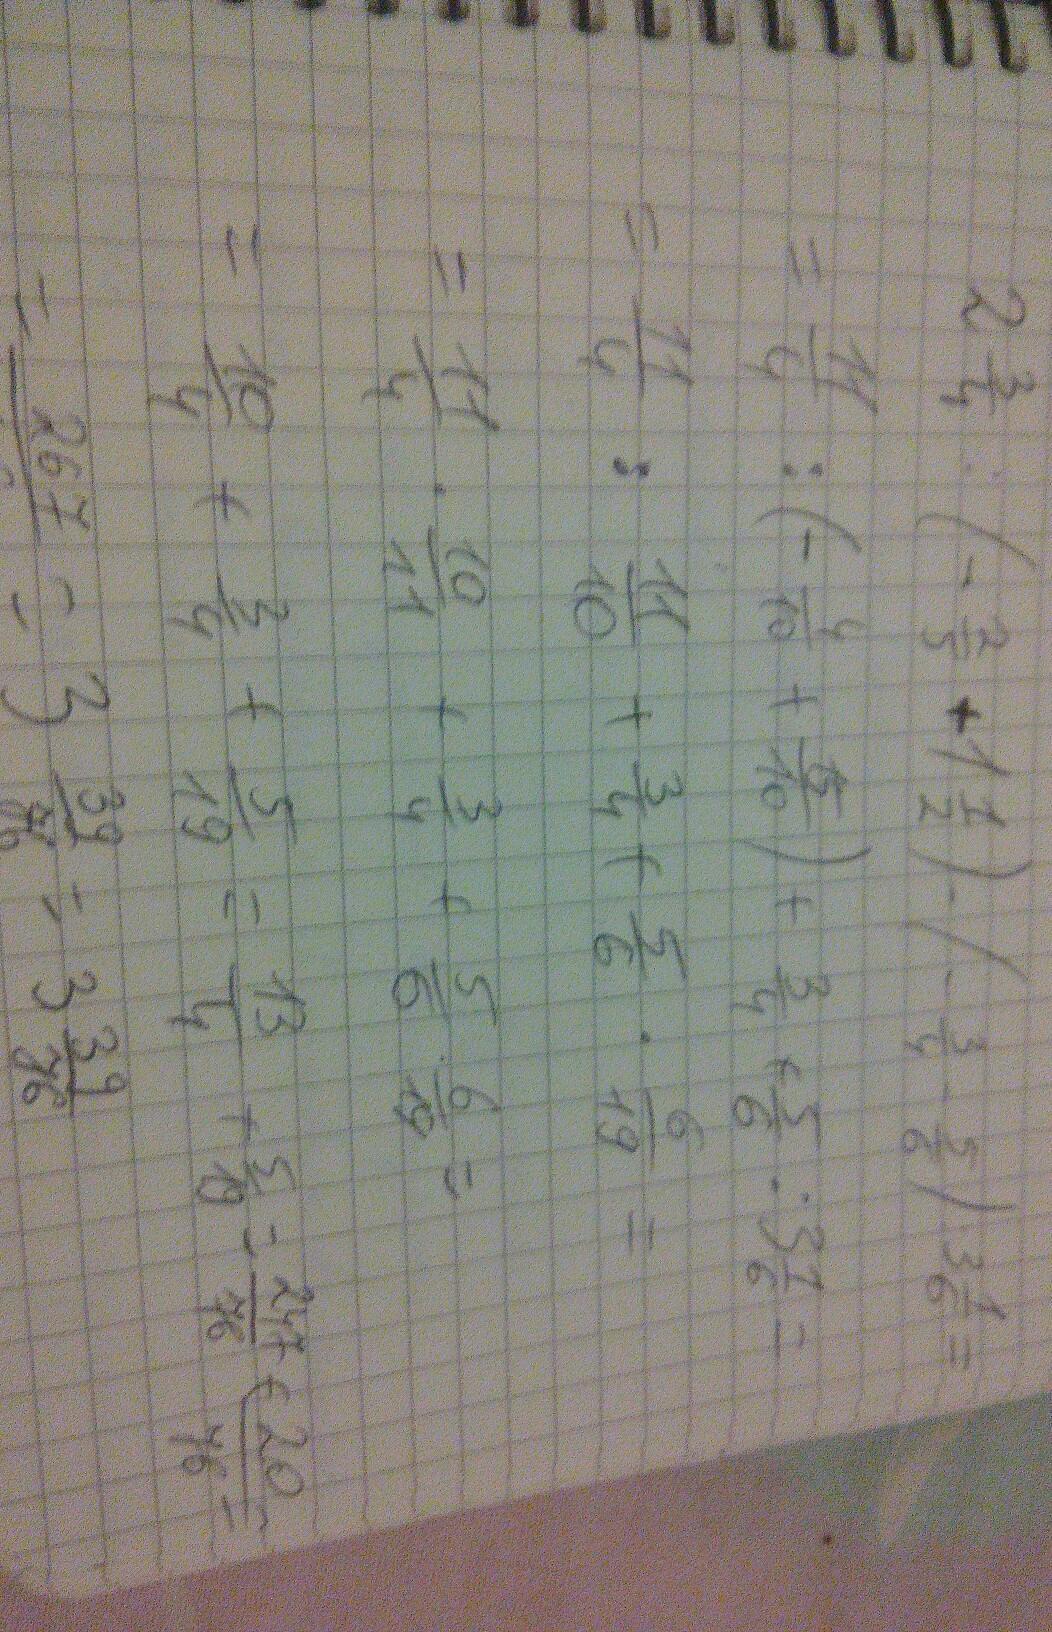 2 3/4 : (- 2/5 + 1 1/2) - (- 3/4 - 5/6) : 3 1/6 =
= 11/4 : (- 4/10 + 15/10) + 3/4 + 5/6 : 3 1/6 =
= 11/4 : 11/10 + 3/4 + 5/6 · 6/19 =
= 11/4 · 10/11 + 3/4 + 5/6 · 6/19 =
= 10/4 + 3/4 + 5/19 = 13/4 + 5/19 = 247/76 + 20/76 =
= 267 = 3 39/76 = 3 39/76